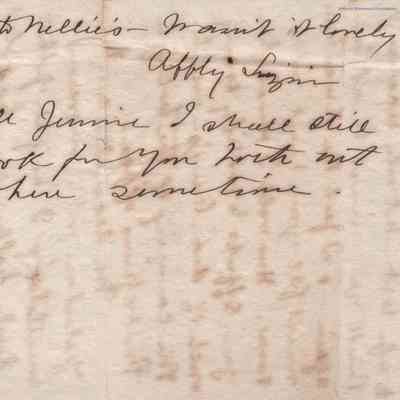 to Nellie's - Wasn't it lovely
Affly Lizzie
Jennie I shall still
look for you both out
here sometime.